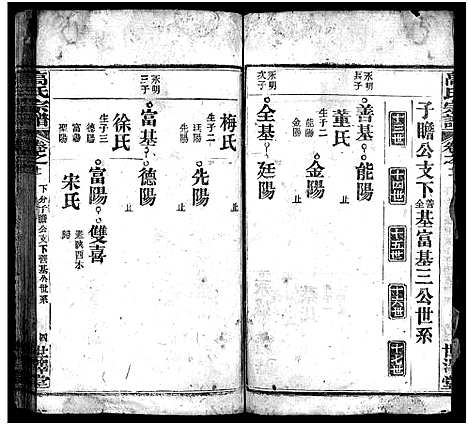 高氏宗譜
世澤堂
子瞻公支下善全基富基三公世系
十三世
十四世
十五世
十六世
十七世
永明長子
善基
能陽
止
董氏
生子二
能陽
金陽
金陽
止
永明次子
全基
廷陽
止
梅氏
生子二
廷陽
先陽
先陽
止
永明三子
富基
德陽
止
徐氏
生子三
德陽
富陽
聖陽
富陽
雙喜
宋氏
高氏宗譜
下分子瞻公支下善基公世系
四
世澤堂